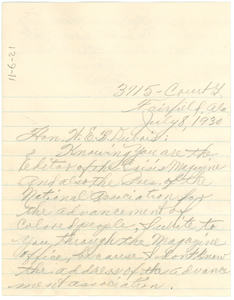 11-6-21
3415-Court G.
Fairfield, Ala.
July 8, 1930
Hon. W. E. B. Dubois:
Knowing you are the
editor of the Crisis Magazine
and also the Sec. of the
National Association for
the advancement of
Colored people, I write to
you through the Magazine
office, because I don't know
the address of the advance
ment association.